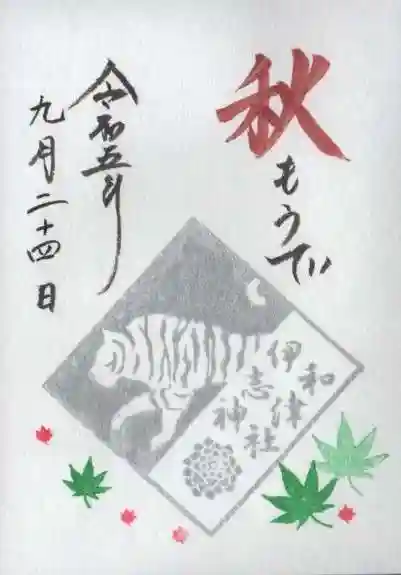 秋もうで
伊和
志津
神社
令和五年
九月二十四日